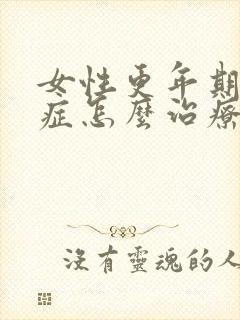 女性更年期
症怎麼治療
沒有靈魂的人